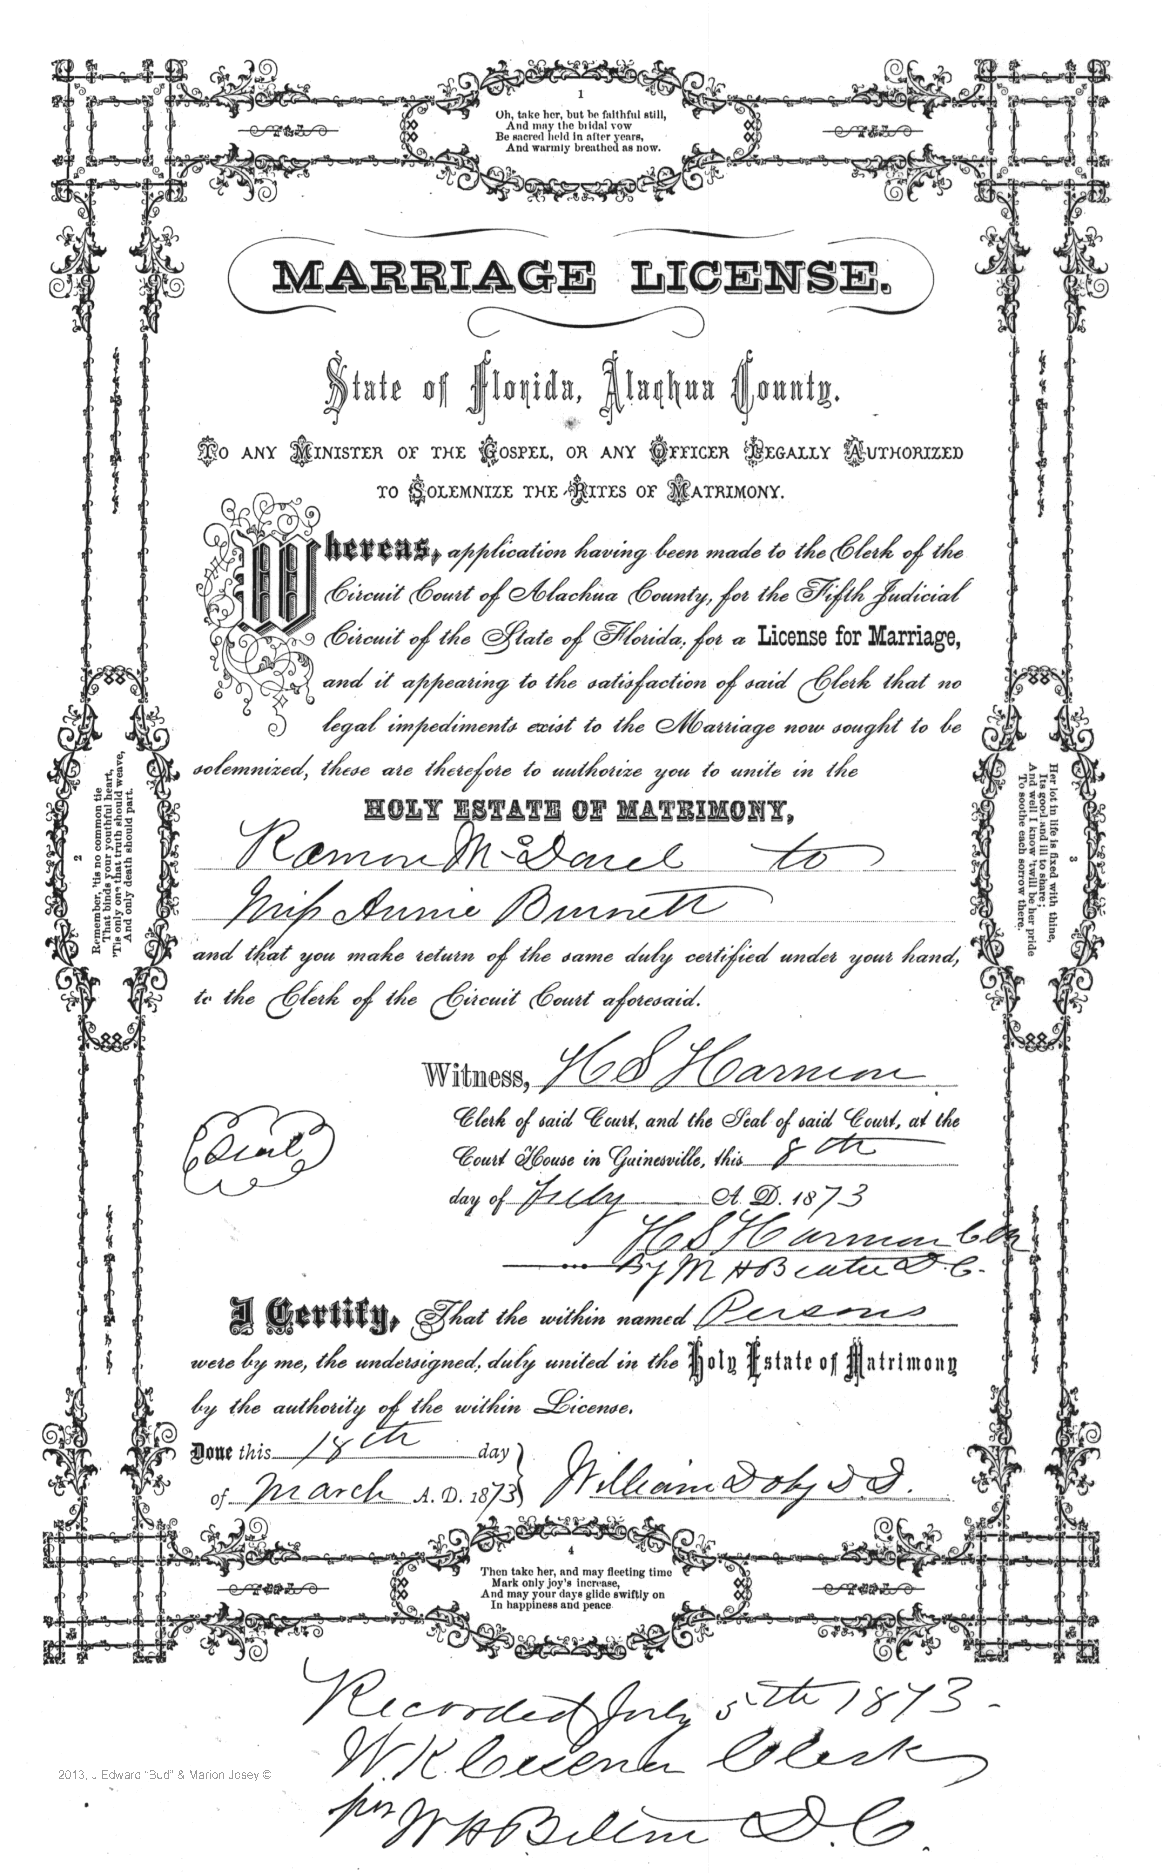 1
Oh, take her, but be faithful still,
And may the bridal vow
Be sacred held in after years,
And warmly breathed as now.
MARRIAGE LICENSE.
State of Florida, Alachua County.
TO ANY MINISTER OF THE GOSPEL, OR ANY OFFICER LEGALLY AUTHORIZED
TO SOLEMNIZE THE RITES OF MATRIMONY.
Whereas, application having been made to the Clerk of the
Circuit Court of Alachua County, for the Fifth Judicial
Circuit of the State of Florida, for a License for Marriage,
and it appearing to the satisfaction of said Clerk that no
legal impediments exist to the Marriage now sought to be
solemnized, these are therefore to authorize you to unite in the
HOLY ESTATE OF MATRIMONY,
to
Miss Annie Burnett
and that you make return of the same duly certified under your hand,
to the Clerk of the Circuit Court aforesaid.
2
Remember, 'tis no common tie
That binds your youthful heart,
'Tis only one that truth should weave,
And only death should part.
3
Her lot in life is fixed with thine,
Its good and ill to share;
And well I know 'twill be her pride
To soothe each sorrow there.
Witness, H S Harmon
Clerk of said Court, and the Seal of said Court, at the
Court House in Gainesville, this 8th
day of July A. D. 1873
Seal
H S Harmon Clk
By M H D. C.
I Certify, That the within named Persons
were by me, the undersigned, duly united in the Holy Estate of Matrimony
by the authority of the within License.
Done this 18th day
of March A. D. 1873 William Doby D. D.
4
Then take her, and may fleeting time
Mark only joy's increase,
And may your days glide swiftly on
In happiness and peace.
Recorded July 5th 1873 -
W. K. Clerk
per W H D. C.
2013, J Edward "Bud" & Marion Josey ©